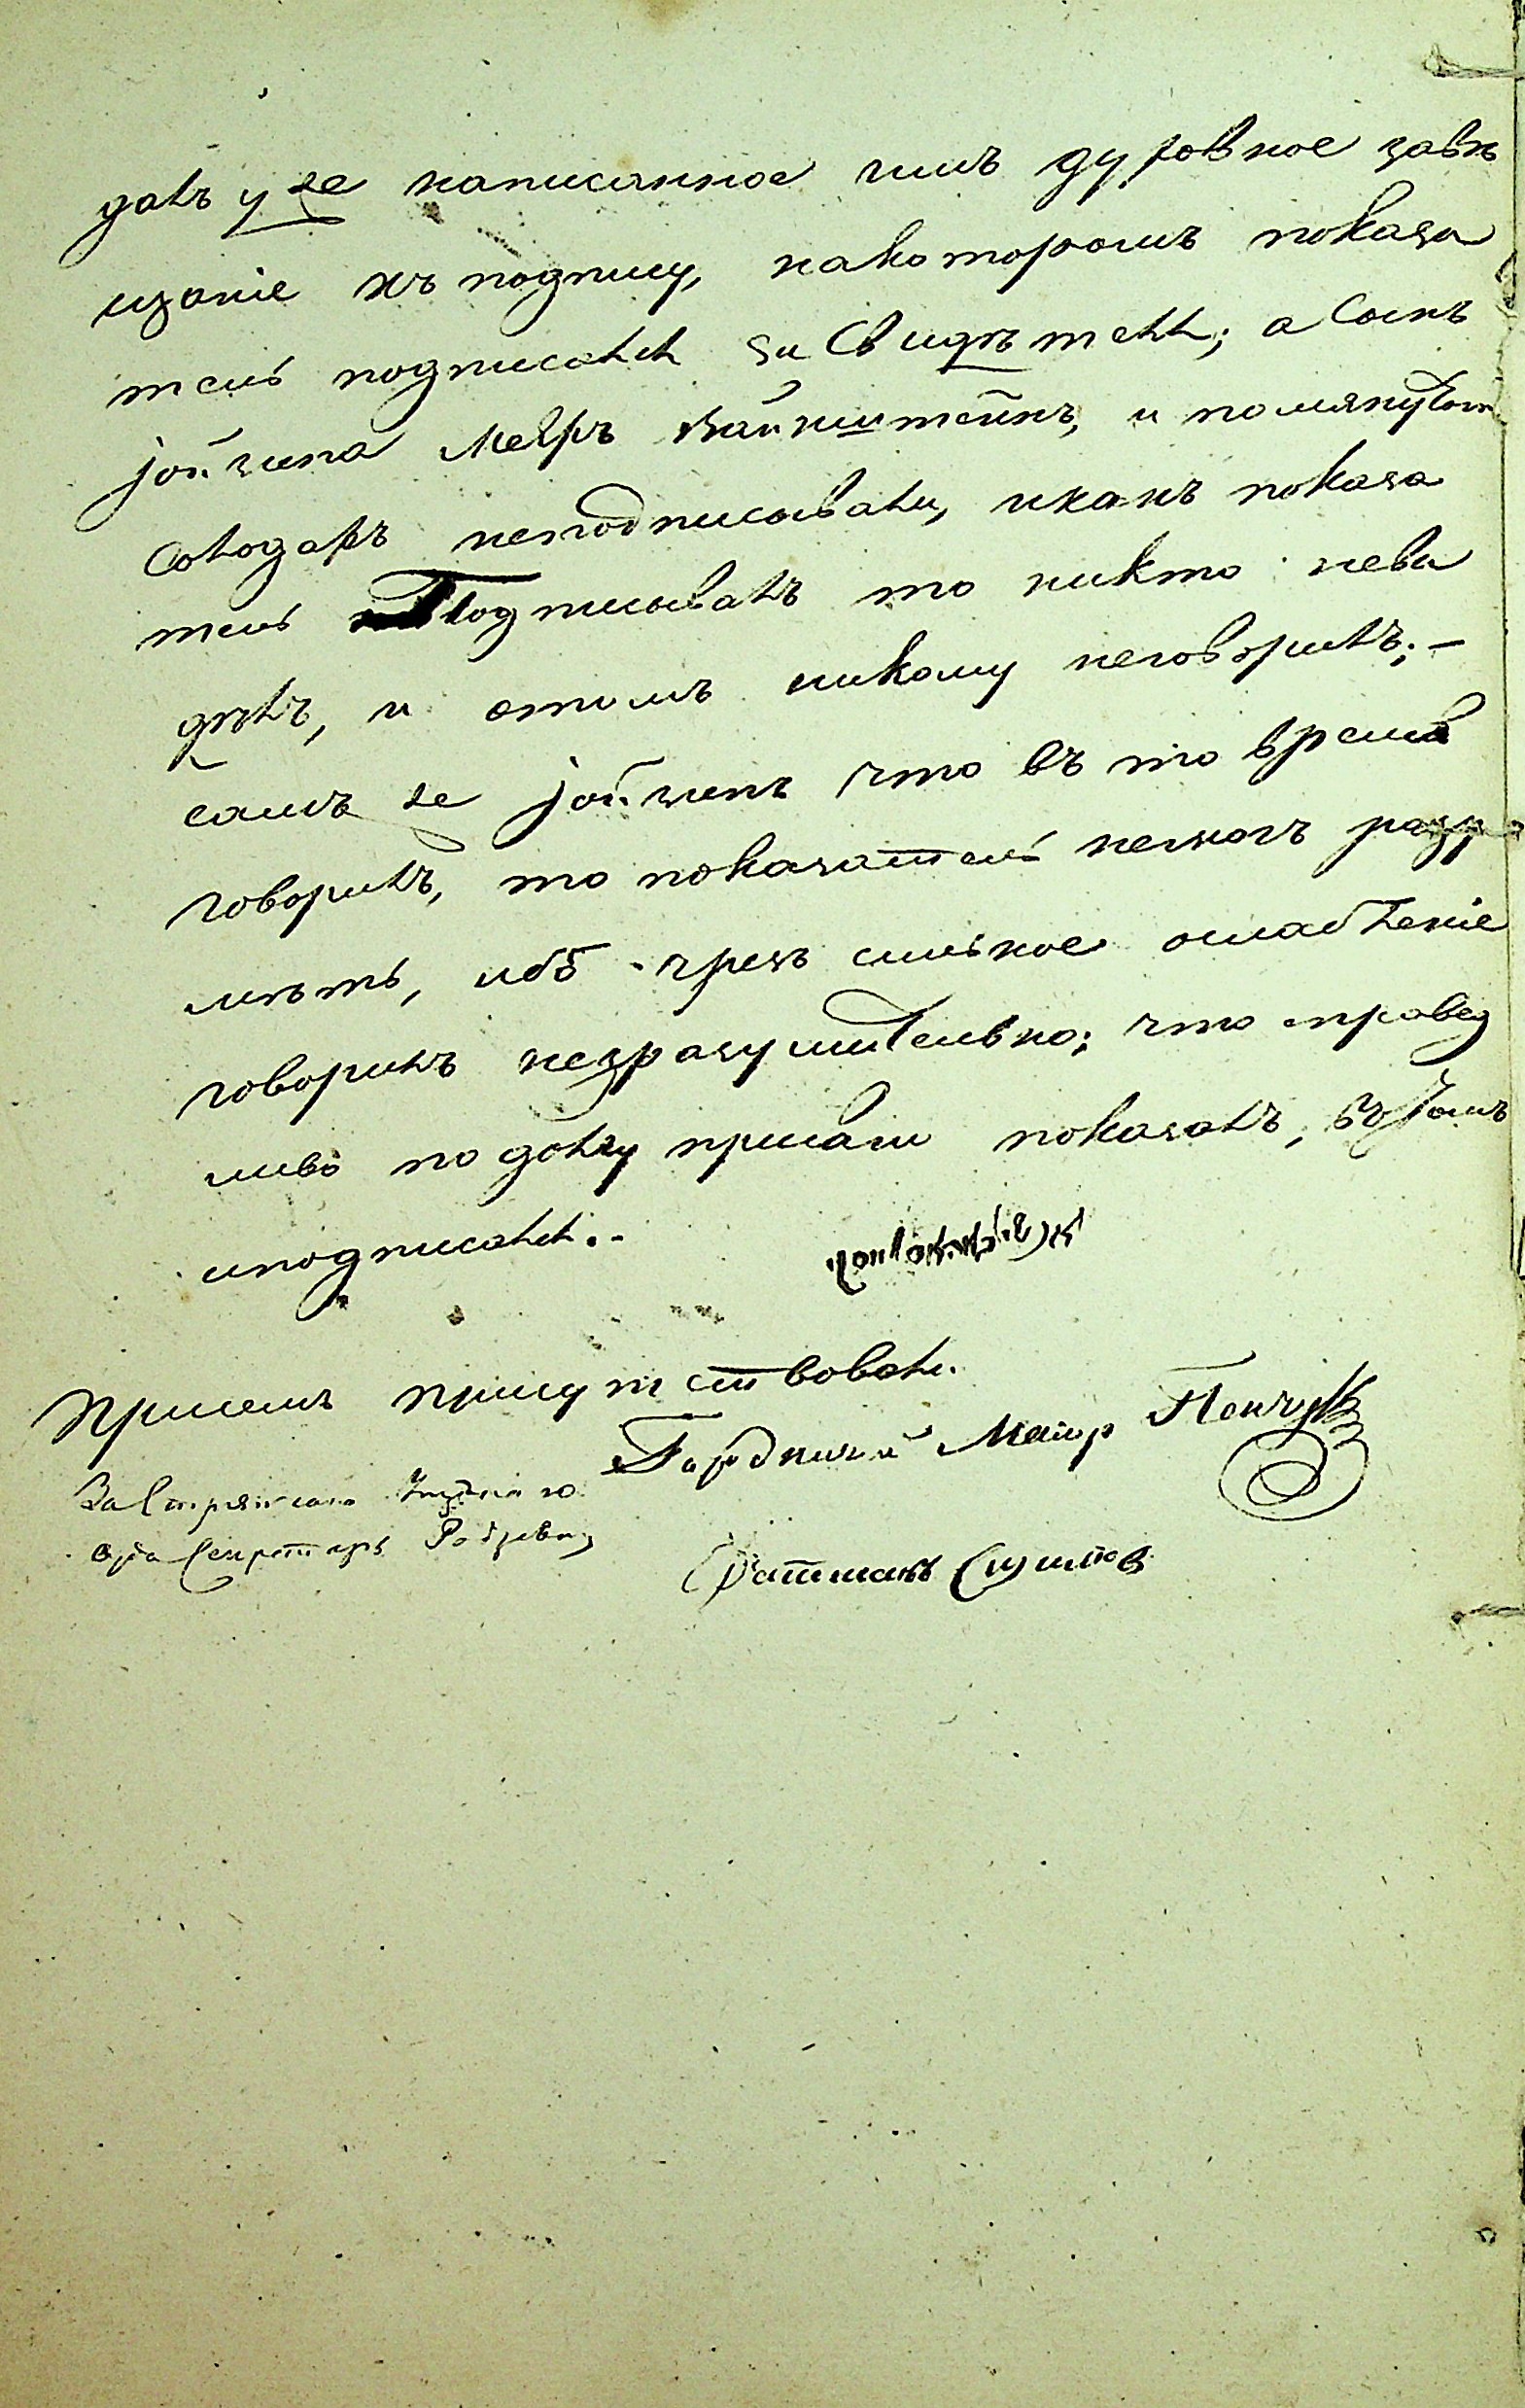 далъ уже написанное имъ духовное завѣ
щаніе къ подпису, накоторомъ показа
тель подписался за Свидѣтеля; а Сынъ
Іойхина Мееръ Вайнштейнъ, и помянутой
Солодарь неподписывали, икакъ показа
тель Подписывалъ то никто неви
дѣлъ, и отомъ никому неговорилъ; –
самъ же Іойхинъ что въ то время
говорилъ, то показатель немогъ разу
мѣть, ибо чрезъ сильное ослабленіе
говорилъ неразумительно; что справед
ливо по долгу присяги показалъ, въ томъ
иподписался.–
Присемъ присутствовали.
Городничій Маіор
За Стряпчаго
Секретарь
Ратманъ